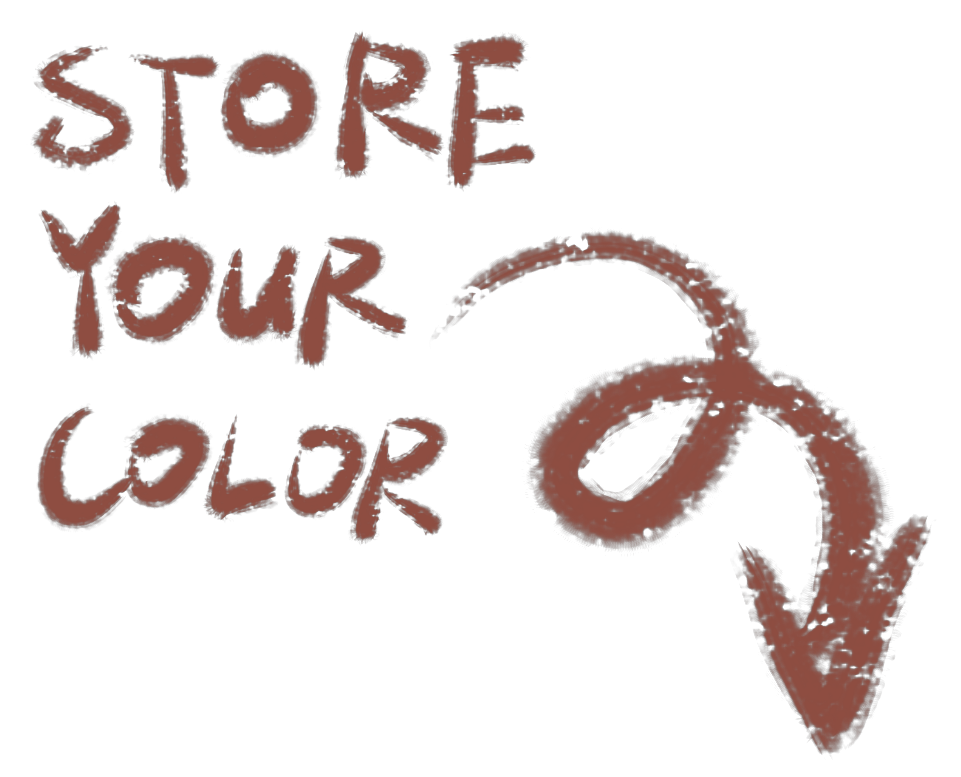 STORE
YOUR
COLOR